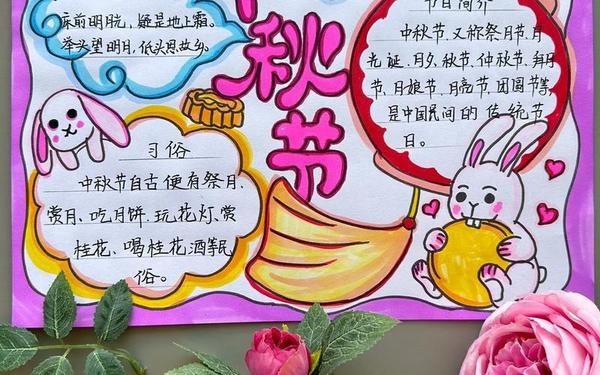 床前明月光，疑是地上霜。
举头望明月，低头思故乡。
中
秋
节
节日简介
中秋节，又称祭月节、月
光诞、月夕、秋节、仲秋节、拜月
节、月娘节、月亮节、团圆节等，
是中国民间的传统节
日。
习俗
中秋节自古便有祭月、
赏月、吃月饼、玩花灯、赏
桂花、喝桂花酒等民
俗。